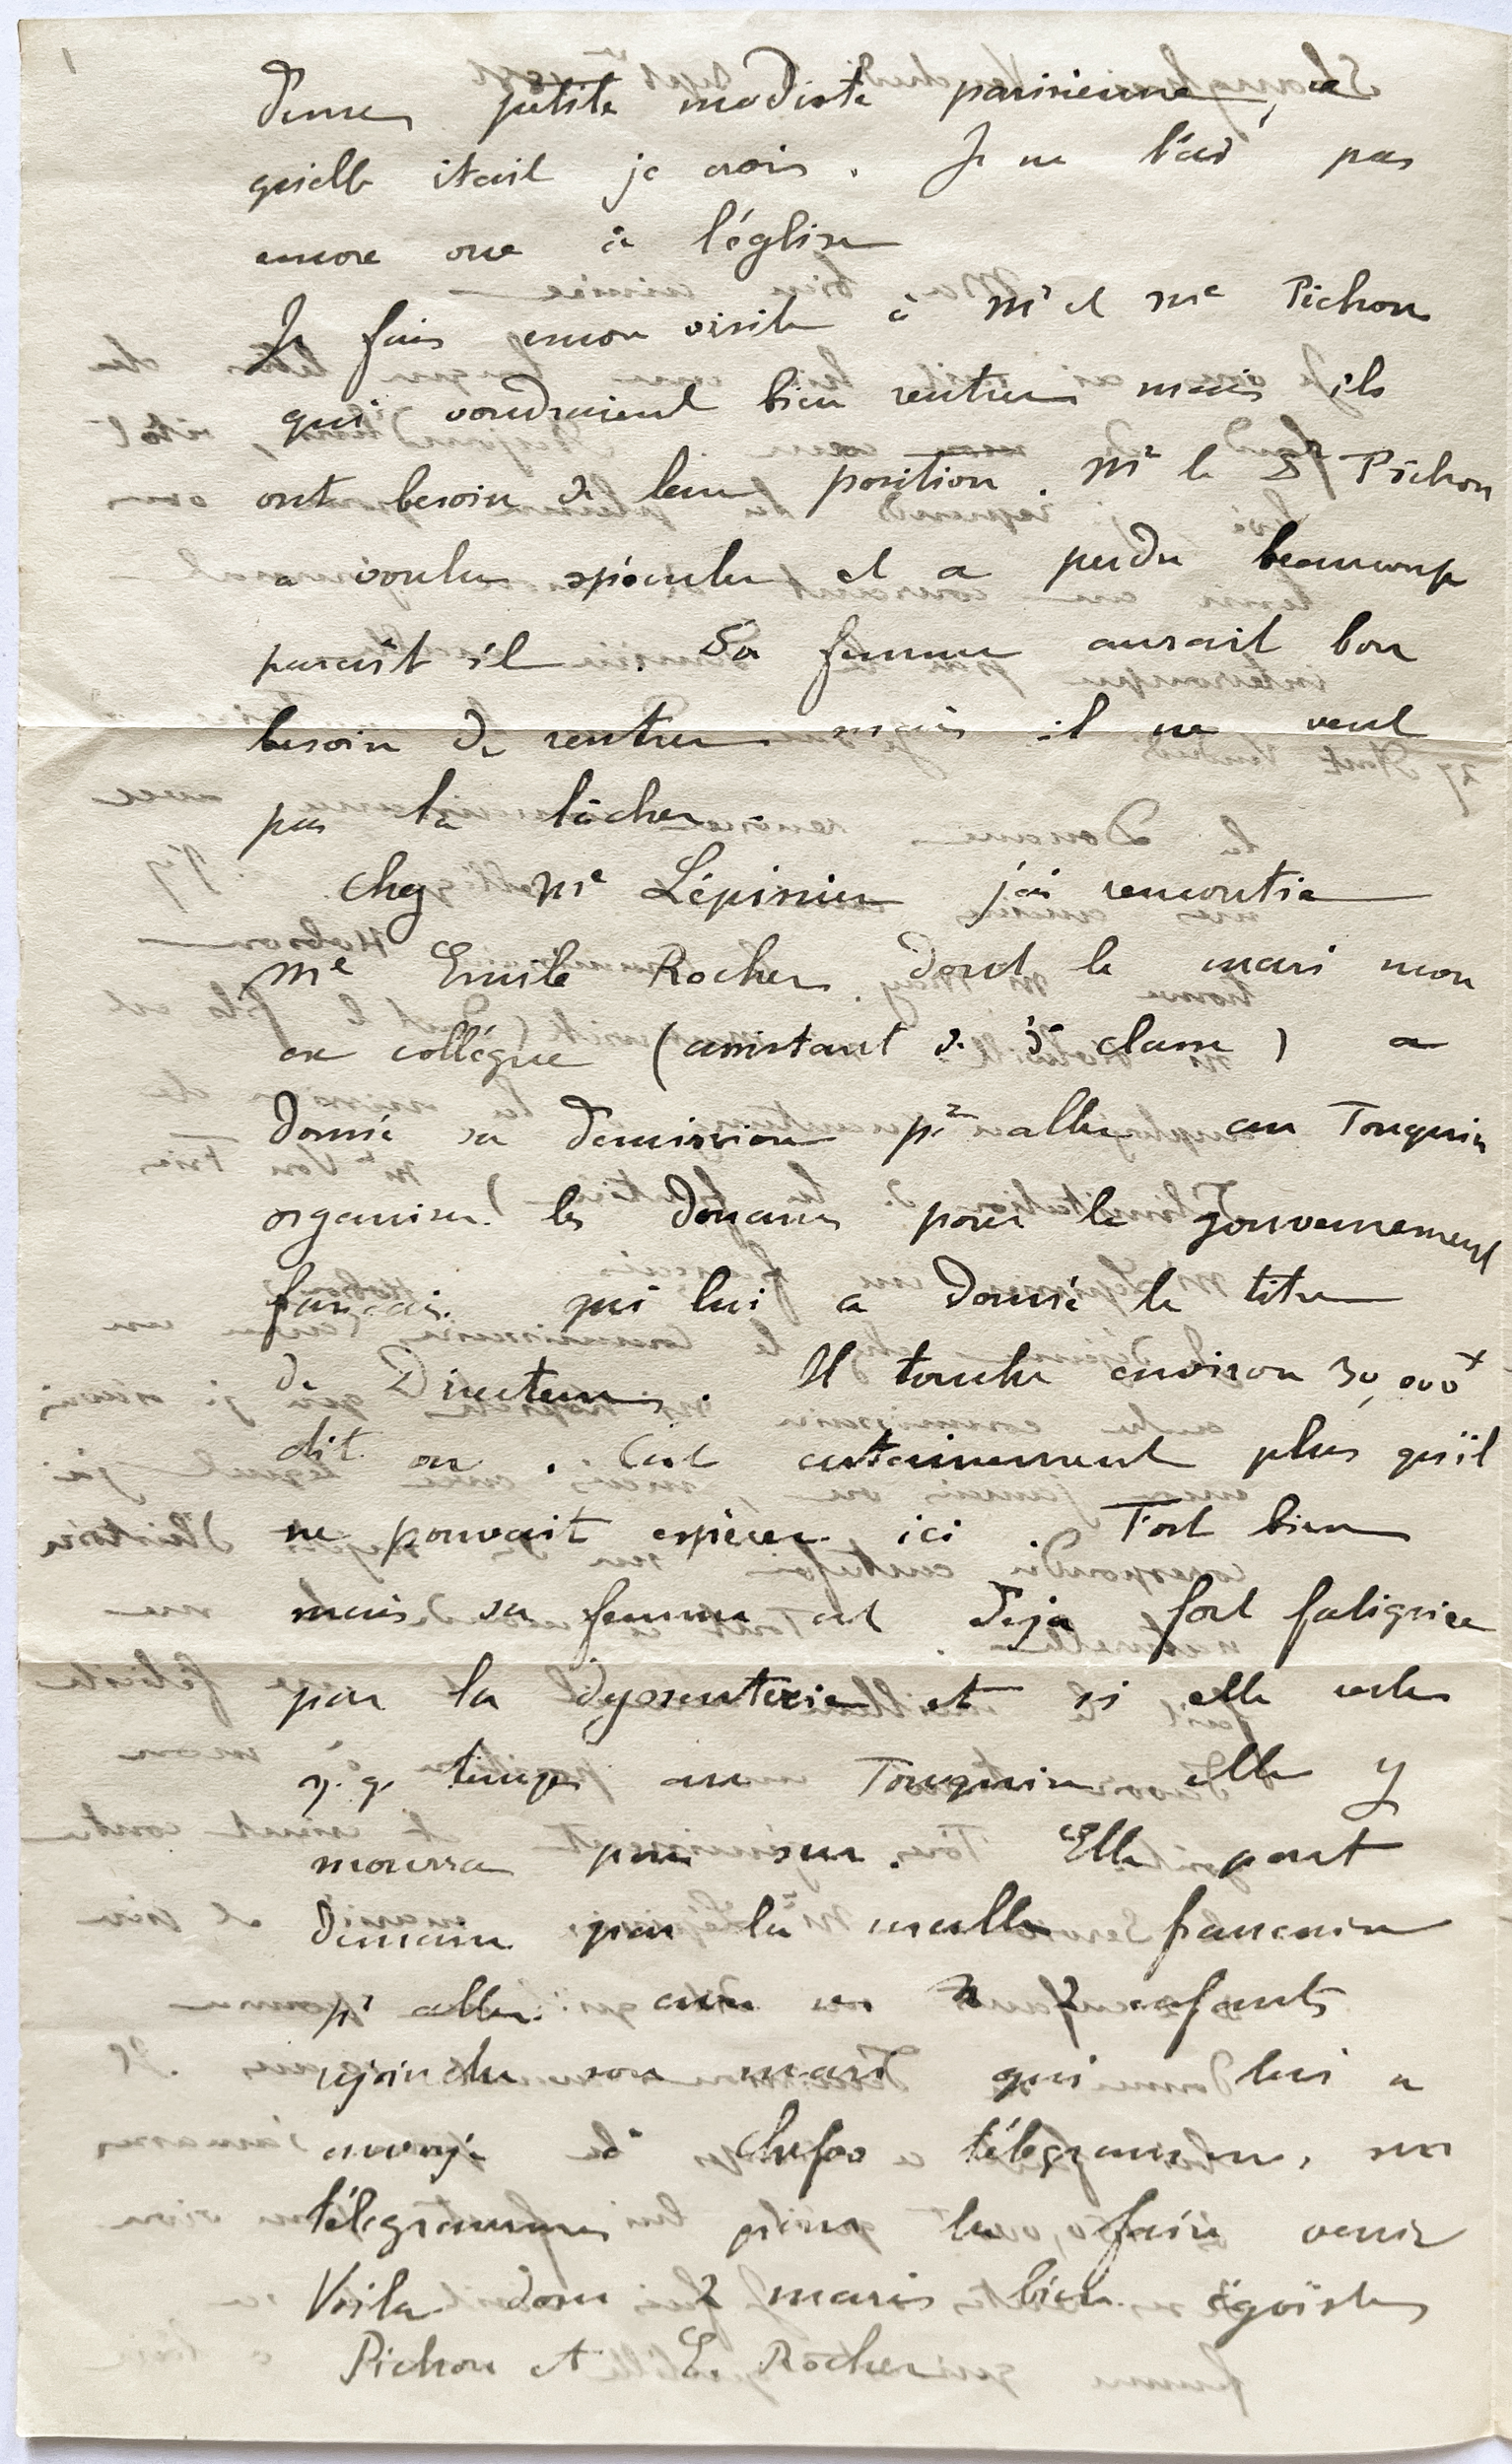 d'une petite modiste parisienne, ce
qu'elle était je crois. Je ne l'ai pas
encore vue à l'église
Je fais encore visite à Mr et Me Pichon
qui voudraient bien rentrer mais ils
ont besoin de leur position. Mr le Dr Pichon
a voulu spéculer et a perdu beaucoup
parait il. Sa femme aurait bon
besoin de rentrer mais il ne veut
pas la lâcher.
Chez Me Lépissier j'ai rencontré
Me Emile Rocher dont le mari mon
ex collégue (assistant de 3e classe) a
donné sa démission pr aller au Tonquin
organiser les Douanes pour le Gouvernement
français qui lui a donné le titre
de Directeur. Il touche environ 30,000 f
dit on. C'est certainement plus qu'il
ne pouvait espérer ici. Fort bien
mais sa femme est déja fort fatiguée
par la dyssenterie et si elle reste
q.q. temps au Tonquin elle y
mourra pour sur. Elle part
demain par la malle française
pr aller avec ses 2 enfants
rejoindre son mari qui lui a
envoyé à Chefoo télégrammes sur
télégrammes pour la faire venir
Voila donc 2 maris bien égoïstes
Pichon et E. Rocher